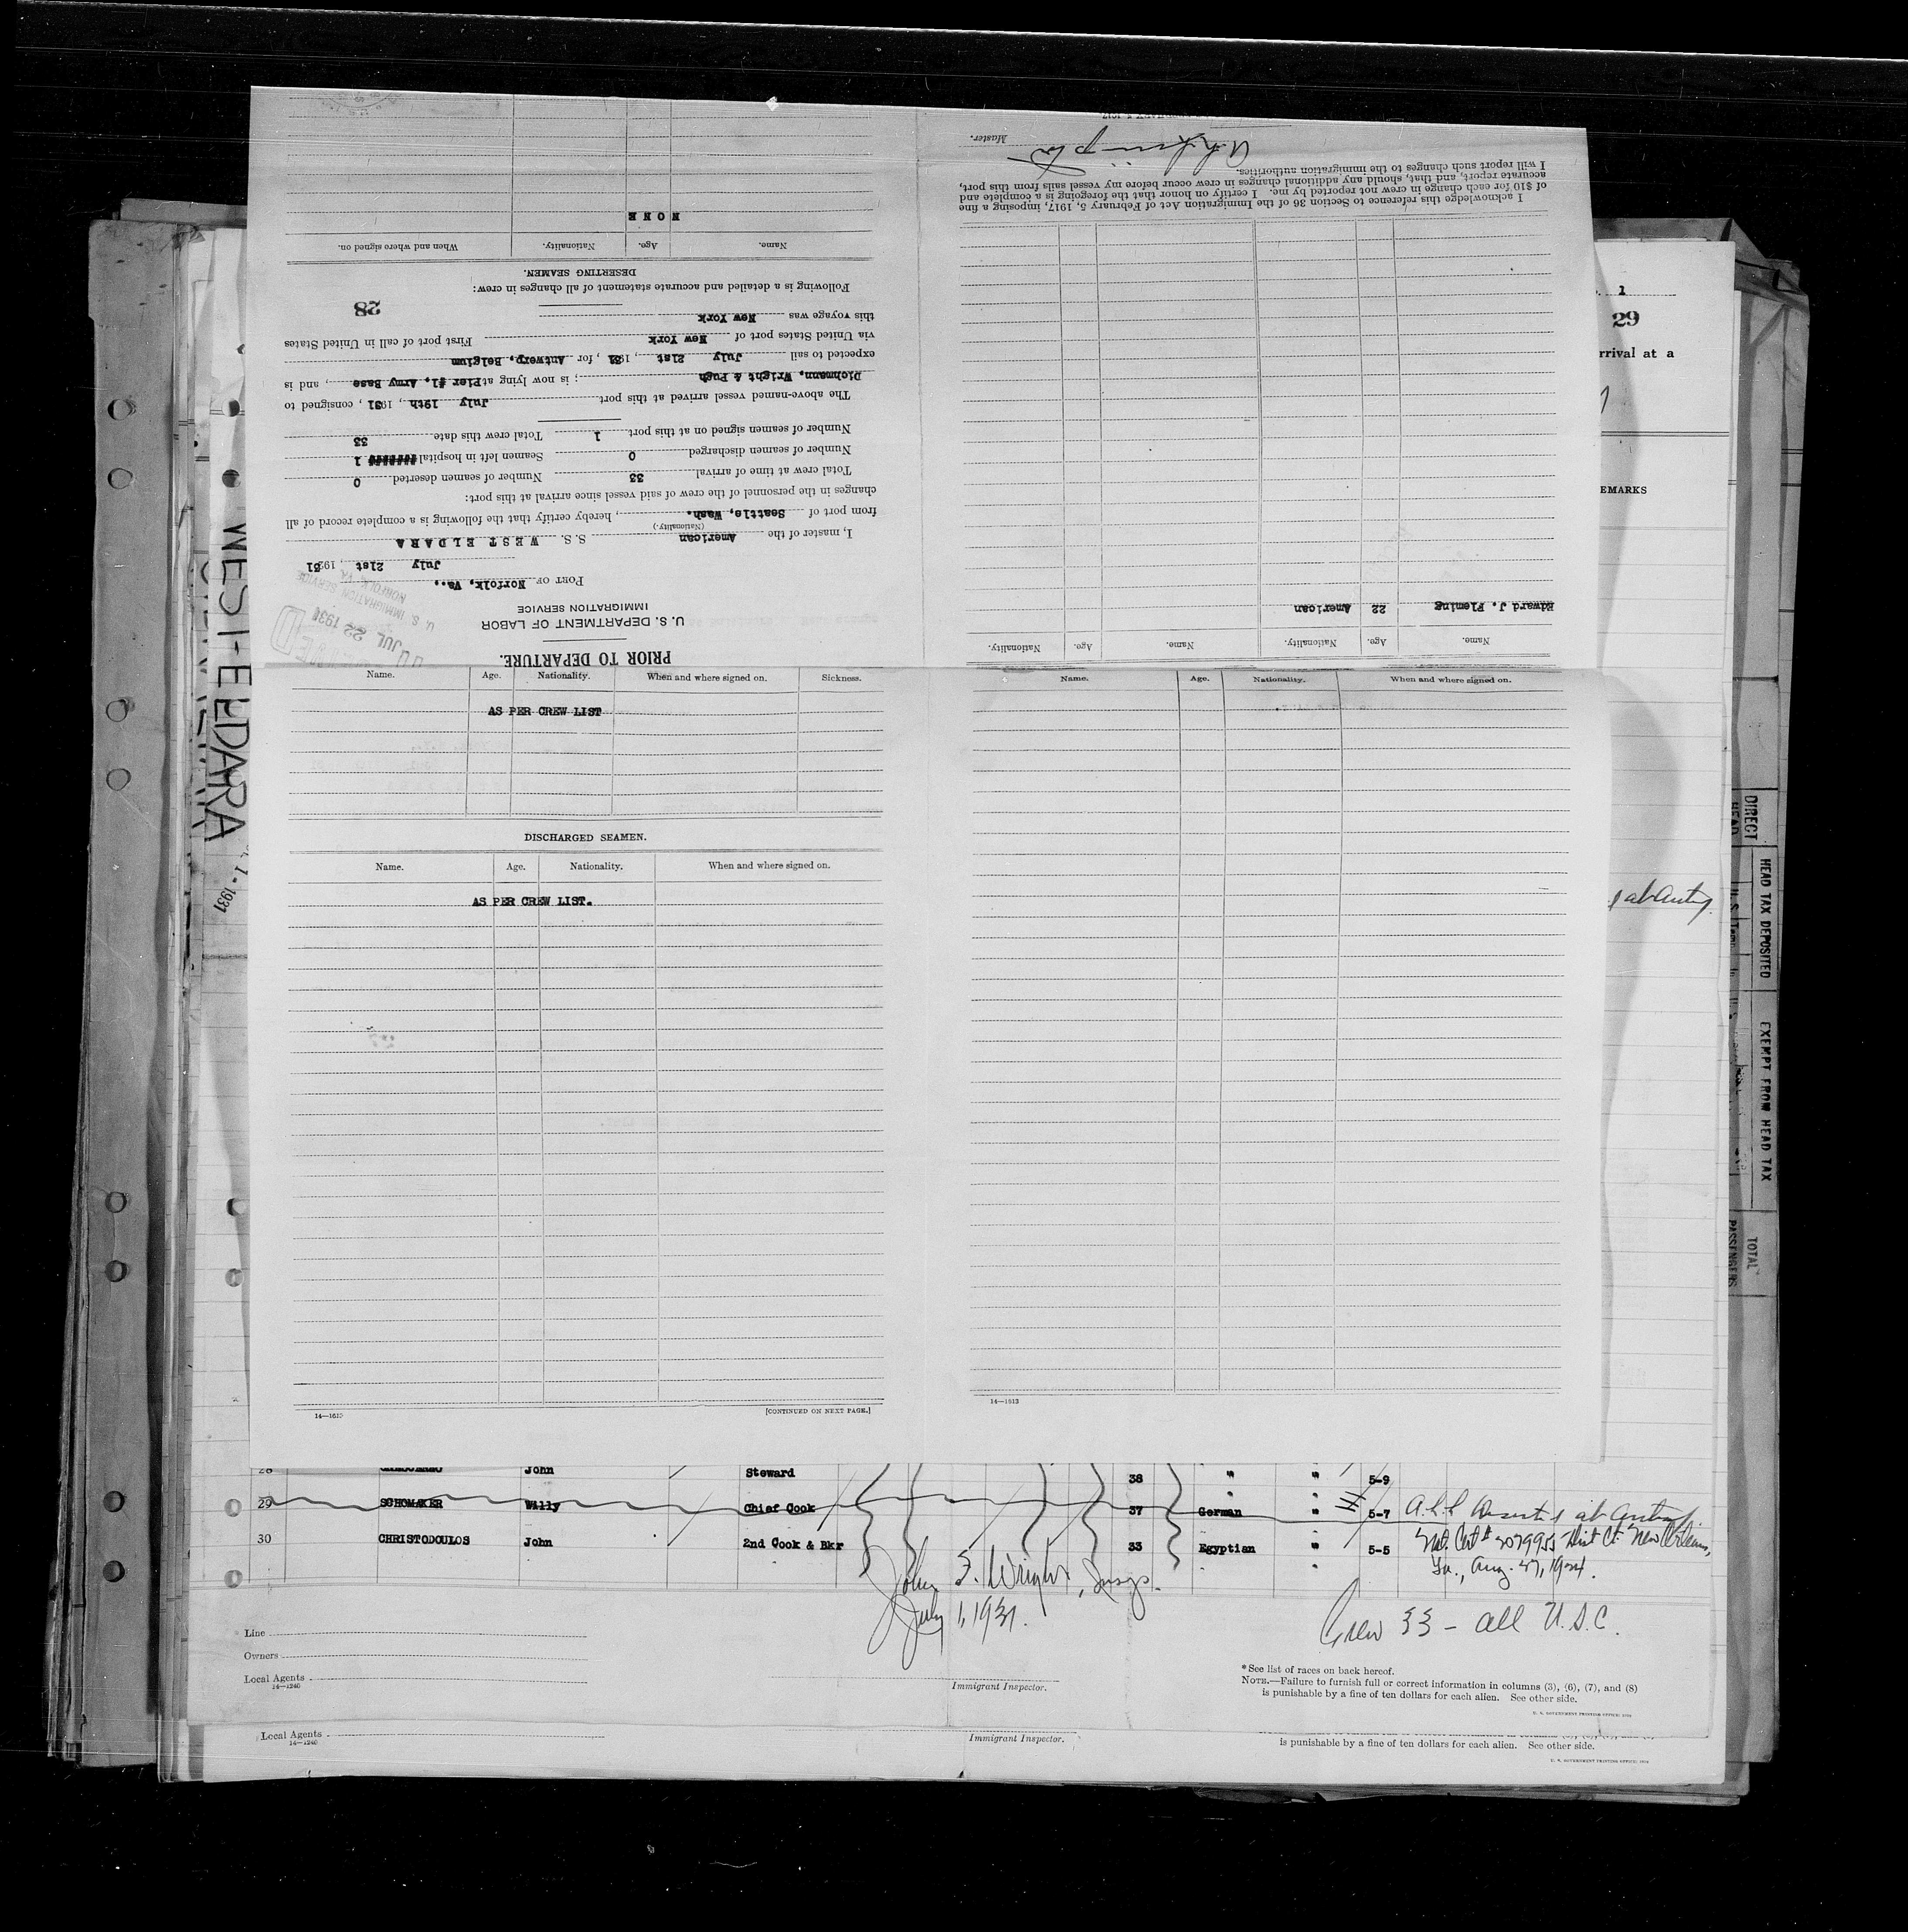 PRIOR TO DEPARTURE.
U. S. DEPARTMENT OF LABOR
IMMIGRATION SERVICE
JUL 22 1931
U. S. IMMIGRATION SERVICE
NORFOLK, VA.
PORT OF Norfolk, Va.,
July 21st, 1931
I, master of the American S. S. WEST ELDARA
(Nationality.)
from port of Seattle, Wash., hereby certify that the following is a complete record of all
changes in the personnel of the crew of said vessel since arrival at this port:
Total crew at time of arrival 33 Number of seamen deserted 0
Number of seamen discharged 0 Seamen left in hospital 1
Number of seamen signed on at this port 1 Total crew this date 33
The above-named vessel arrived at this port July 19th, 1931, consigned to
Dichmann, Wright & Pugh; is now lying at Pier #1, Army Base, and is
expected to sail July 21st, 1931, for Antwerp, Belgium
via United States port of New York First port of call in United States
this voyage was New York
28
Following is a detailed and accurate statement of all changes in crew:
DESERTING SEAMEN.
Name. Age. Nationality. When and where signed on.
NONE
Name. Age. Nationality. Name. Age. Nationality.
Edward J. Fleming 22 American
I acknowledge this reference to Section 36 of the Immigration Act of February 5, 1917, imposing a fine
of $10 for each change in crew not reported by me. I certify on honor that the foregoing is a complete and
accurate report, and that, should any additional changes in crew occur before my vessel sails from this port,
I will report such changes to the immigration authorities.
Master.
Name. Age. Nationality. When and where signed on. Sickness.
AS PER CREW LIST
DISCHARGED SEAMEN.
Name. Age. Nationality. When and where signed on.
AS PER CREW LIST.
14—1613
[CONTINUED ON NEXT PAGE.]
Name. Age. Nationality. When and where signed on.
14—1613
WEST ELDARA
1 - 1931
1
29
rrival at a
EMARKS
DIRECT
HEAD TAX DEPOSITED
EXEMPT FROM HEAD TAX
TOTAL
PASSENGERS
28 John Steward 38 " " 5-9
29 SCHOMAKER Willy Chief Cook 37 German " 5-7
30 CHRISTODOULOS John 2nd Cook & Bkr 33 Egyptian " 5-5 Nat. Cert # 2079955 Dist Ct. New Orleans,
La., Aug. 27, 1924.
John F. Wright, Insp.
July 1, 1931.
Crew 33 - all U.S.C.
Line
Owners
Local Agents
14—1240
Immigrant Inspector.
*See list of races on back hereof.
NOTE.—Failure to furnish full or correct information in columns (3), (6), (7), and (8)
is punishable by a fine of ten dollars for each alien. See other side.
U. S. GOVERNMENT PRINTING OFFICE:
Local Agents
14—1240
Immigrant Inspector.
is punishable by a fine of ten dollars for each alien. See other side.
U. S. GOVERNMENT PRINTING OFFICE: